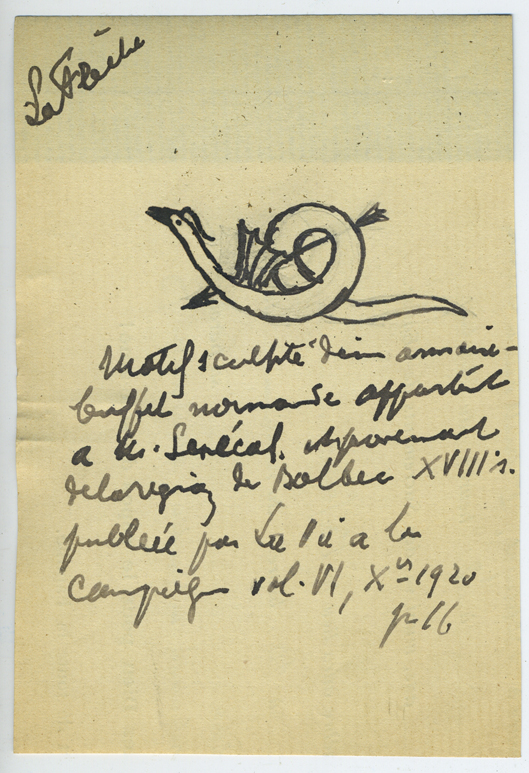 La Flèche
Motif sculpté d'une armoire-
buffet normande appartent
a M. Senécal, et provenant
de la région de Bolbec XVIII s.
publiée par La Vie a la
campagne vol. VI, Xbre 1920
p. 16